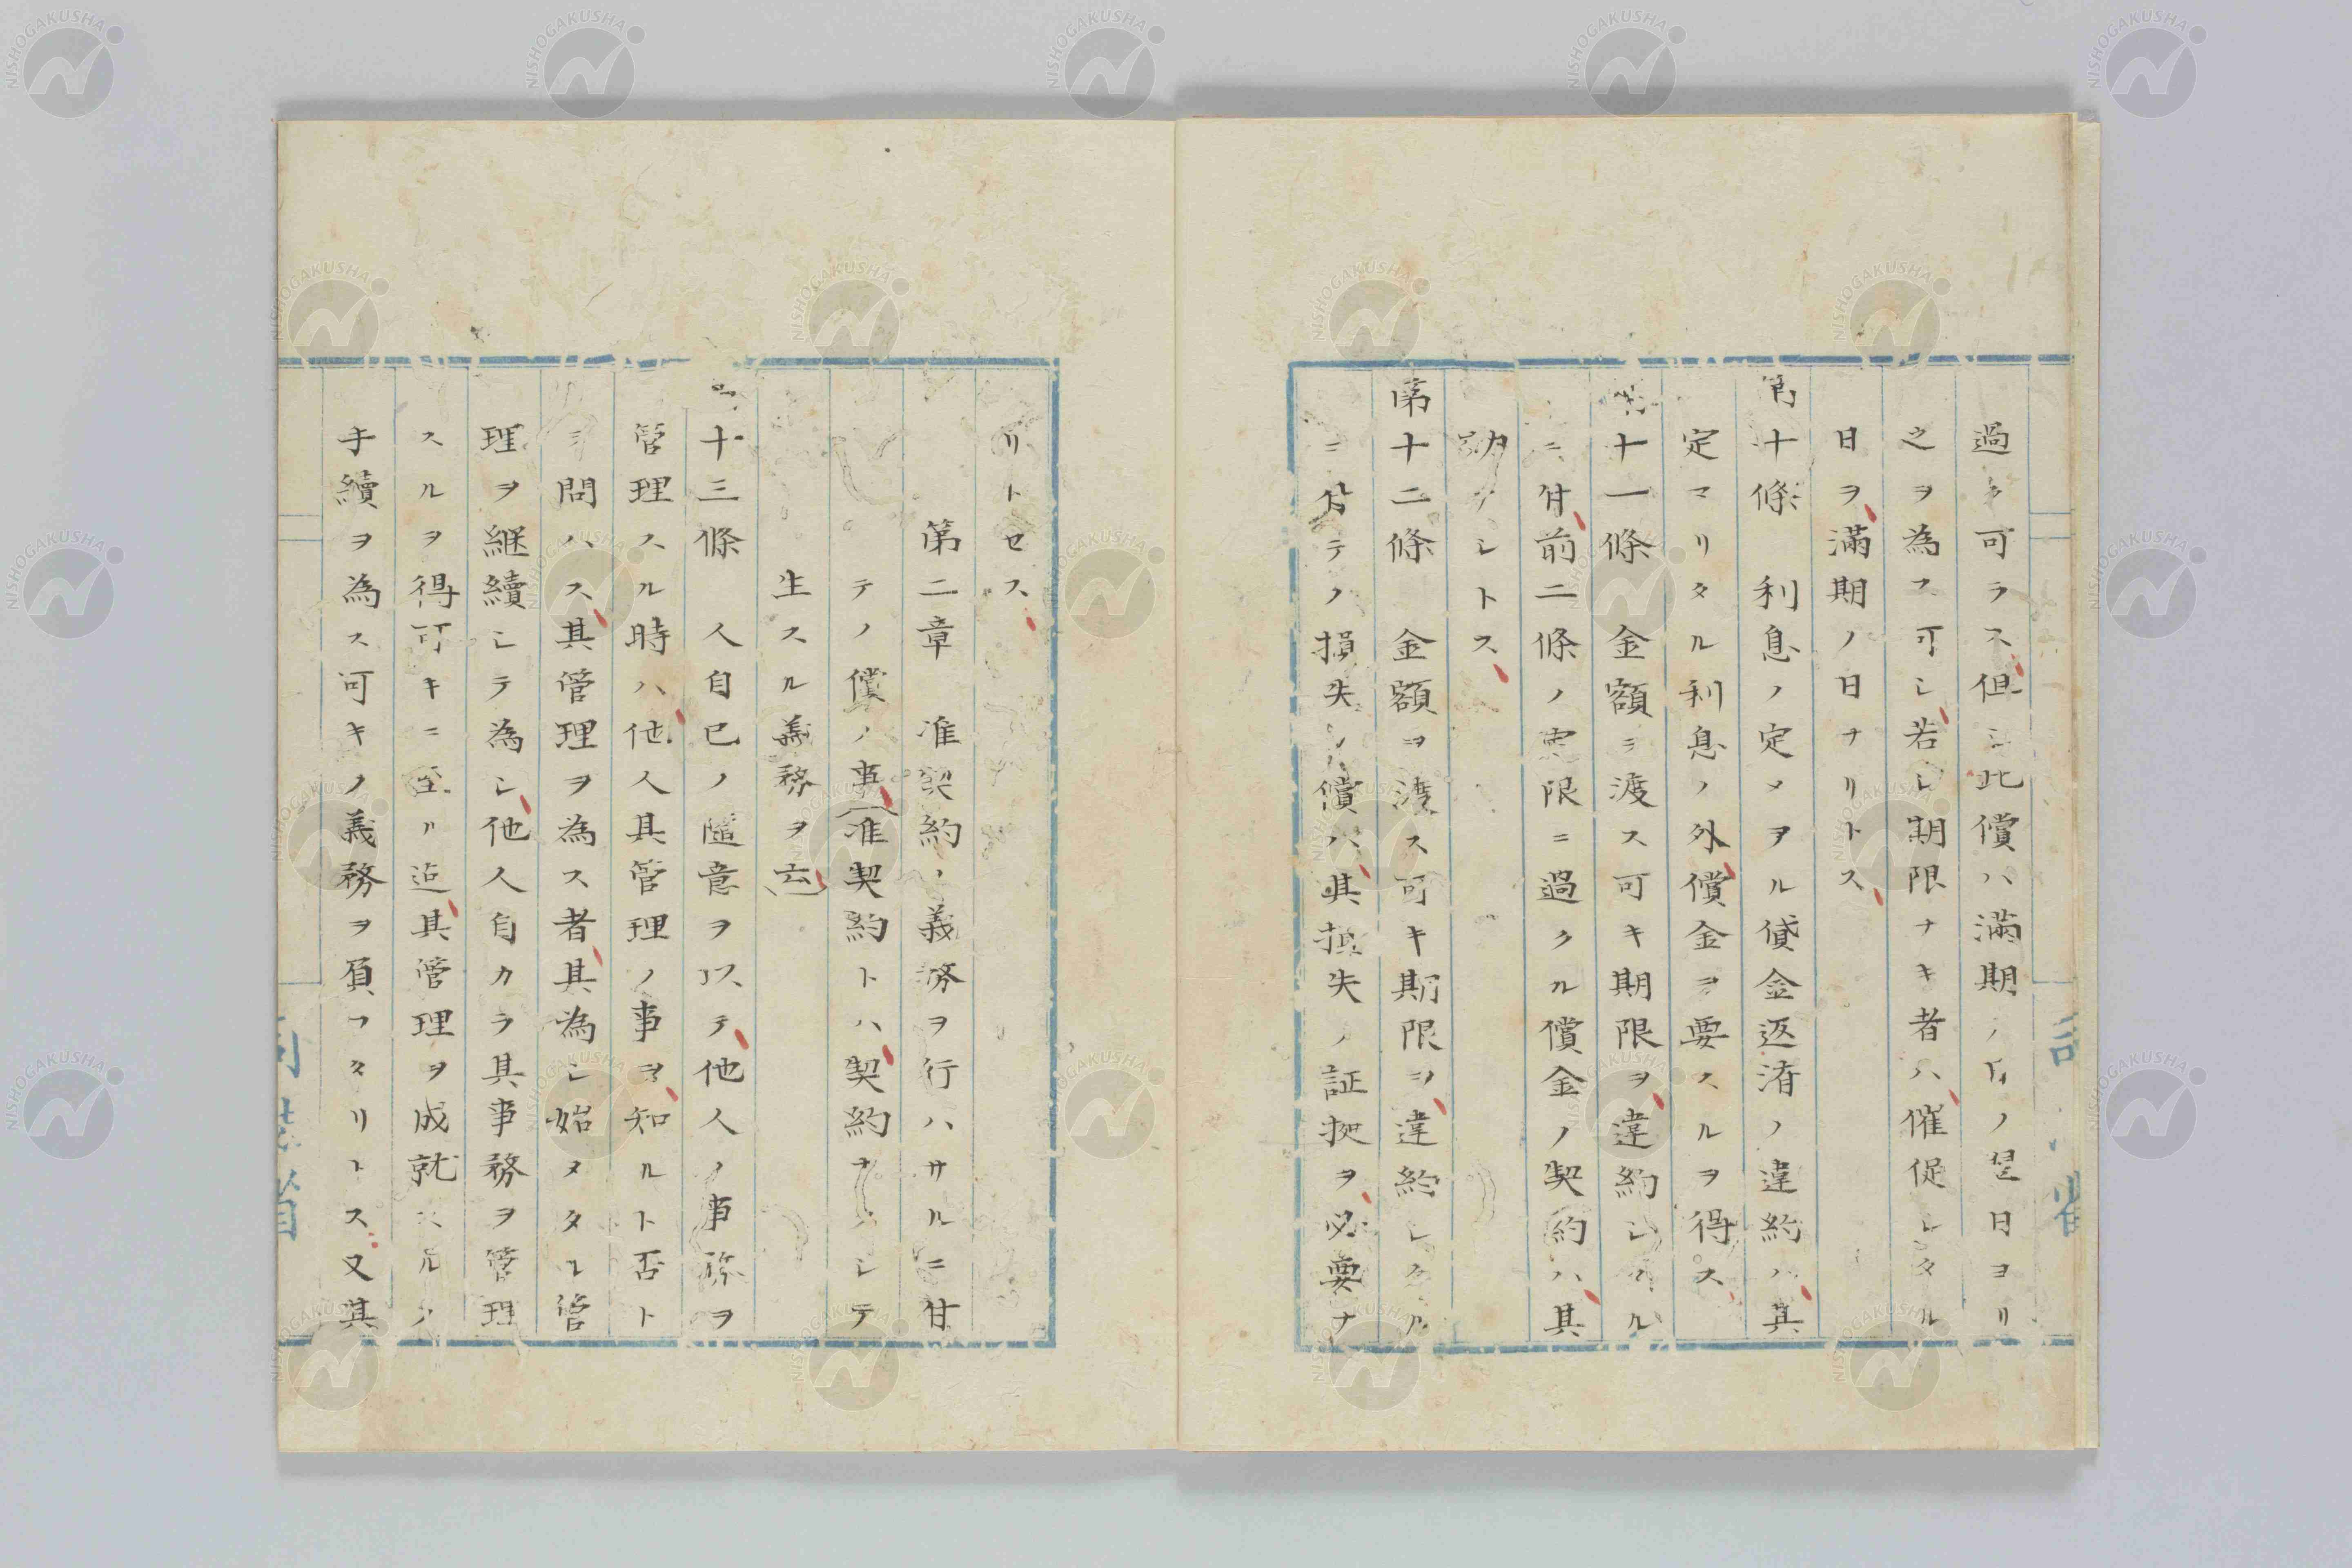 過ク可ラス但シ此償ハ満期ノ日ノ翌日ヨリ
之ヲ為ス可シ若シ期限ナキ者ハ催促シタル
日ヲ満期ノ日ナリトス
第十條　利息ノ定メヲル貸金返済ノ違約ハ其
定マリタル利息ノ外償金ヲ要スルヲ得ス
第十一條　金額ヲ渡ス可キ期限ヲ違約シタル
ニ付前二條ノ定限ニ過クル償金ノ契約ハ其
効ナシトス
第十二條　金額ヲ渡ス可キ期限ヲ違約シタル
ニ付テノ損失ノ償ハ其損失ノ証拠ヲ必要ナ
リトセス
第二章　准契約ノ義務ヲ行ハサルニ付
テノ償ノ事（准契約トハ契約ナクシテ
生スル義務ヲ云）
第十三條　人自已ノ随意ヲ以テ他人ノ事務ヲ
管理スル時ハ他人其管理ノ事ヲ知ルト否ト
ヲ問ハス其管理ヲ為ス者其為シ始メタル管
理ヲ継續シテ為シ他人自カラ其事務ヲ管理
スルヲ得可キニ至ル迠其管理ヲ成就スルノ
手續ヲ為ス可キノ義務ヲ負フタリトス又其
NISHOGAKUSHA